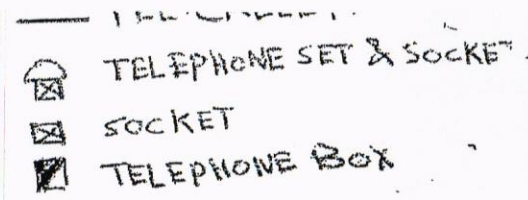 TELEPHONE SET & SOCKET
SOCKET
TELEPHONE BOX